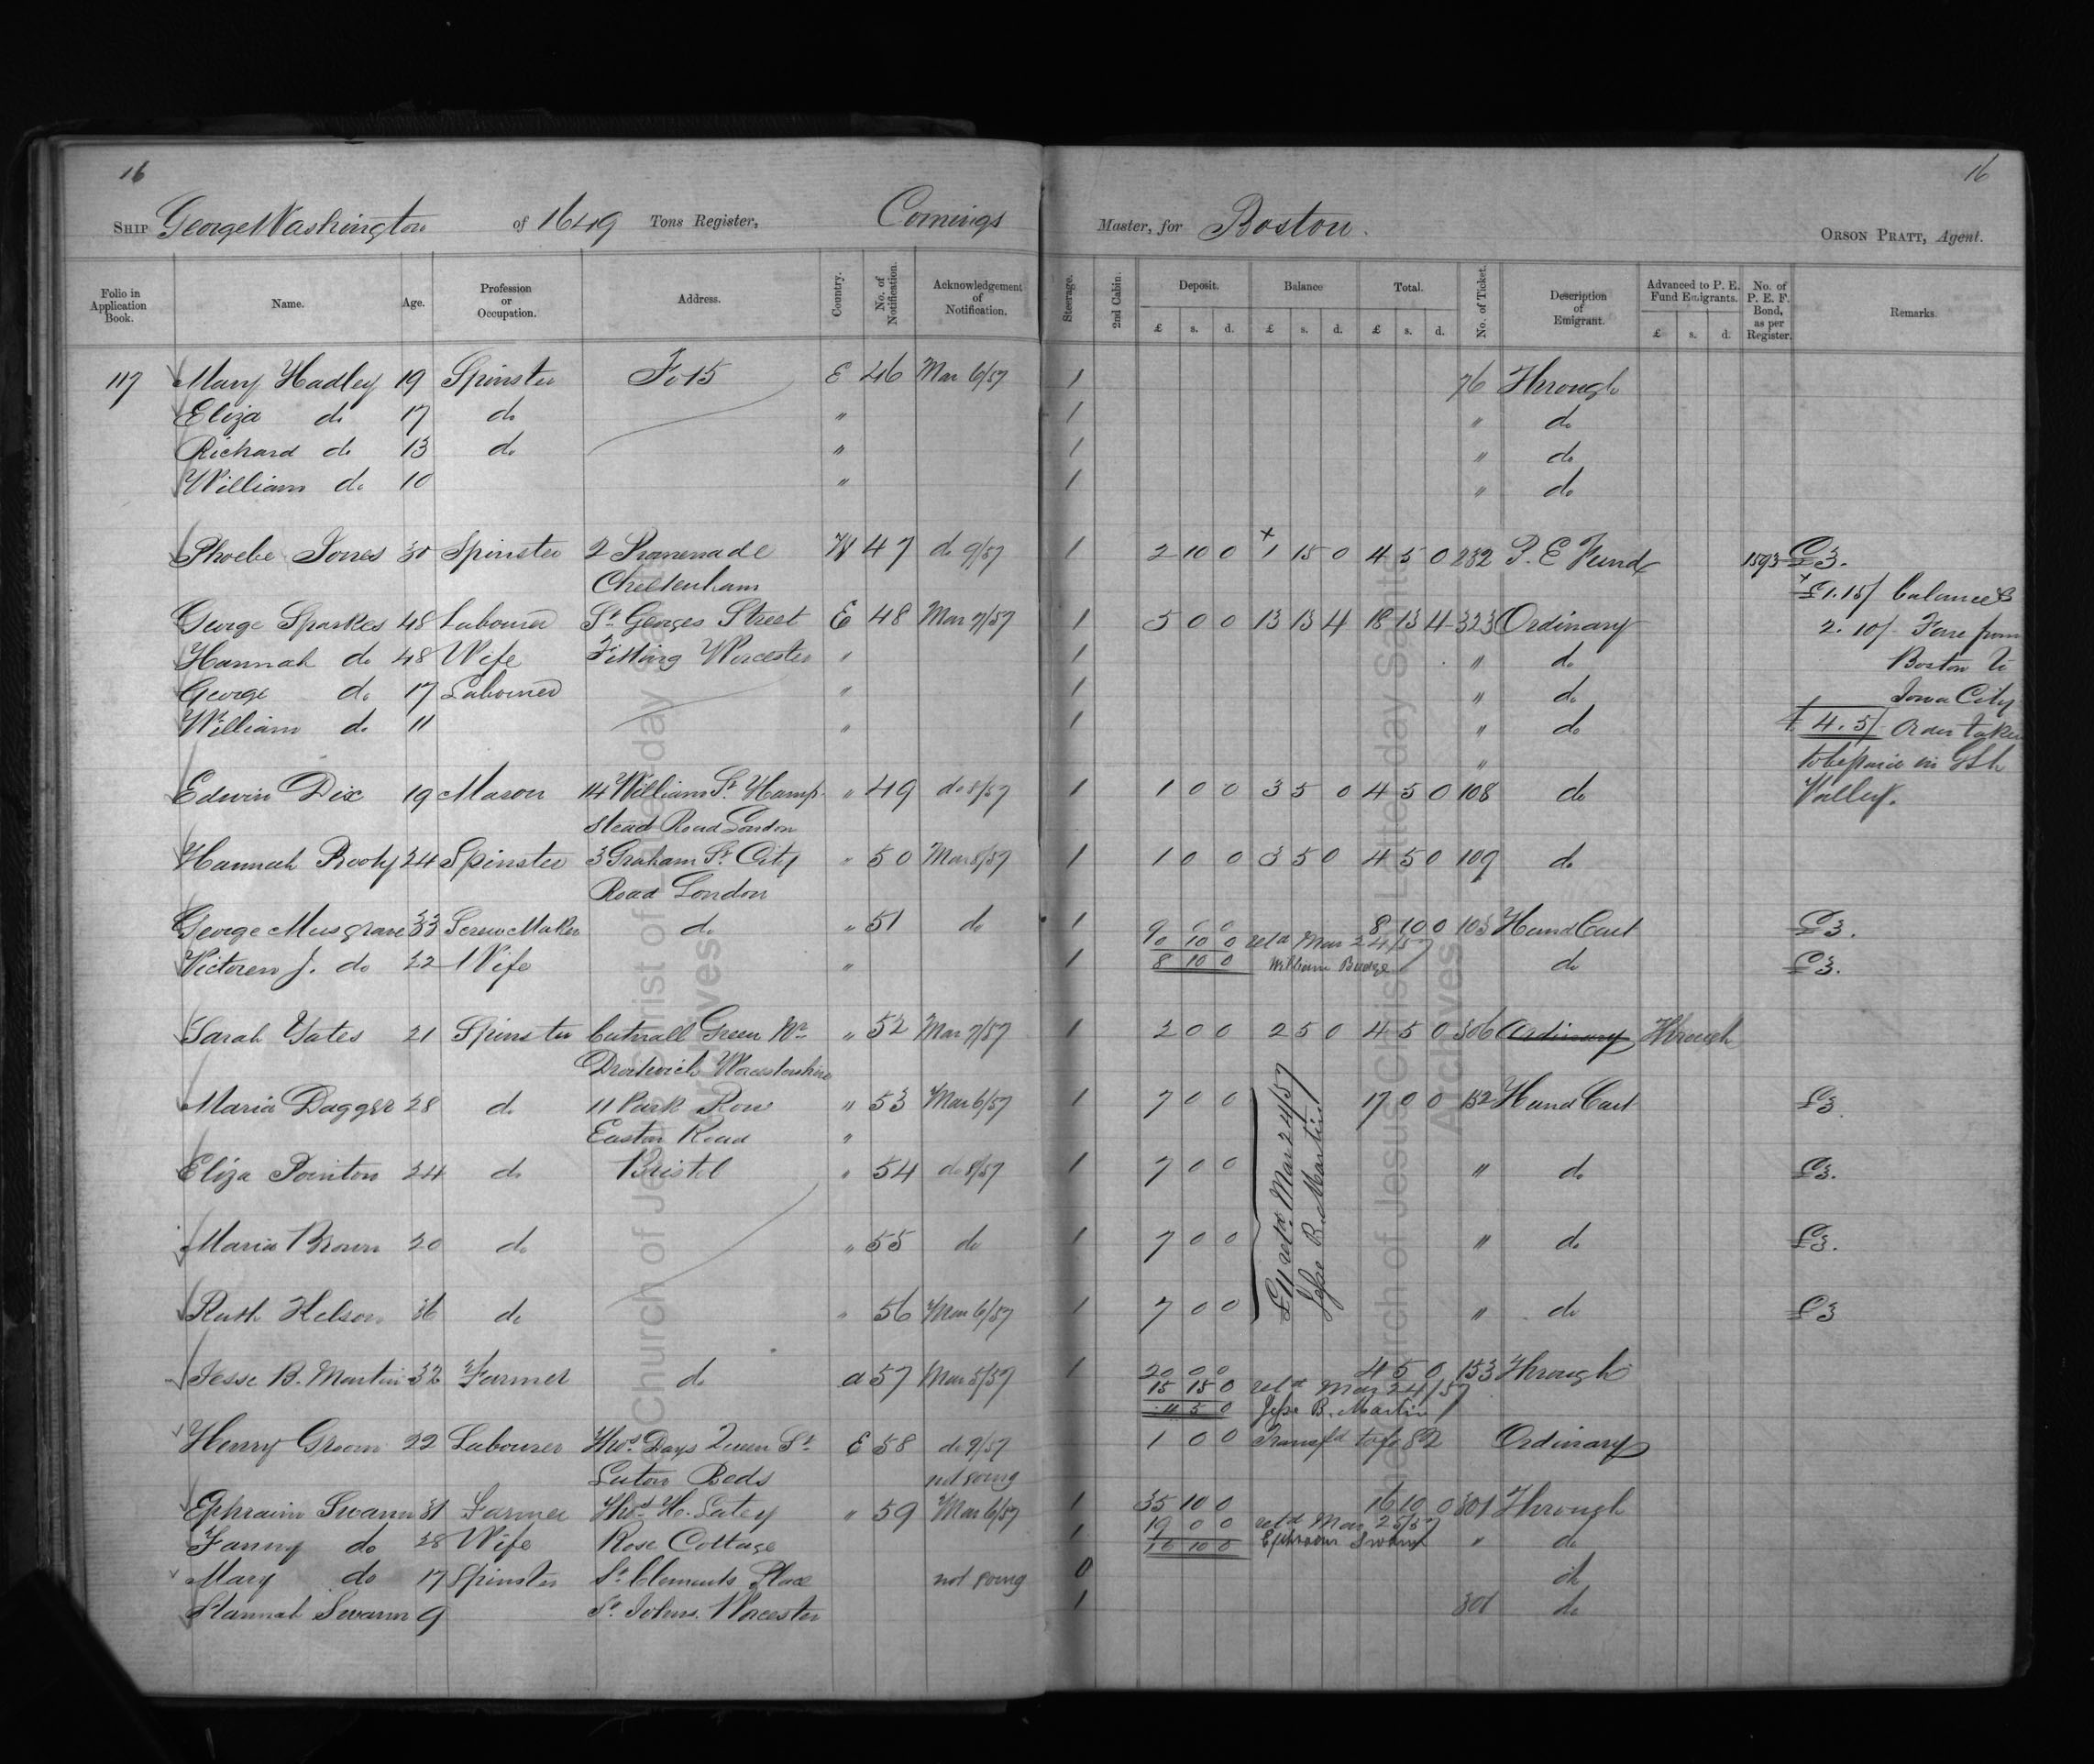 16
16
SHIP George Washington of 1649 Tons Register, Comings Master, for Boston. ORSON PRATT, Agent.
Folio in Application Book. Name. Age. Profession or Occupation. Address. Country. No. of Notification. Acknowledgement of Notification. Steerage. 2nd Cabin. Deposit. Balance Total. No. of Ticket. Description of Emigrant. Advanced to P. E. Fund Emigrants. No. of P. E. F. Bond, as per Register. Remarks.
£ s. d. £ s. d. £ s. d. £ s. d.
117 Mary Hadley 19 Spinster Fo 15 E 46 Mar 6/57 1 76 Through
Eliza do 17 do " 1 " do
Richard do 13 do " 1 " do
William do 10 " 1 " do
Phoebe Jones 30 Spinster 2 Promenade W 47 do 9/57 1 2 10 0 + 1 15 0 4 5 0 232 P. E Fund 1593 £3.
Cheltenham + £1.15/ balance &
George Sparkes 48 Labourer St Georges Street E 48 Mar 7/57 1 5 0 0 13 13 4 18 13 4 323 Ordinary 2. 10/- Fare from
Hannah do 48 Wife Worcester " 1 " do Boston to
George do 17 Labourer " 1 " do Iowa City
William do 11 " 1 " do £ 4. 5/- Order taken
" to be paid in
Edwin Dix 19 Mason 14 William St. Hamp- " 49 do 8/57 1 1 0 0 3 5 0 4 5 0 108 do Valley.
stead Road London
Hannah 24 Spinster 3 Graham St. City " 50 Mar 8/57 1 1 0 0 3 5 0 4 5 0 109 do
Road London
George Musgrave 33 Screw Maker do " 51 do 1 9 0 0 8 10 0 103 Hand Cart £3.
10 0 retd Mar 24/57
J. do 22 Wife " 1 8 10 0 William Budge do £3.
Sarah Yates 21 Spinster Cutnall Green Nr " 52 Mar 7/57 1 2 0 0 2 5 0 4 5 0 306 Ordinary Through
Droitwich Worcestershire
Maria Dagger 28 do 11 Park Row " 53 Mar 6/57 1 7 0 0 17 0 0 152 Hand Cart £3
Easton Road "
Eliza Pointon 24 do Bristol " 54 do 8/57 1 7 0 0 " do £3.
£11 retd Mar 24/57
Jesse B. Martin
Maria Brown 20 do " 55 do 1 7 0 0 " do £3.
Ruth Helson 36 do " 56 Mar 6/57 1 7 0 0 " do £3
Jesse B. Martin 32 Farmer do a 57 Mar 5/57 1 20 0 0 4 5 0 153 Through
15 15 0 retd Mar 24/57
4 5 0 Jesse B. Martin
Henry Groom 22 Labourer Thos Days Queen St. E 58 do 9/57 1 0 0 Transfd to fo 82 Ordinary
Luton Beds not going
Ephraim Swann 31 Farmer Thos H. Latey " 59 Mar 6/57 1 35 10 0 16 10 0 301 Through
19 0 0 retd Mar 25/57
Fanny do 28 Wife Rose Cottage 1 16 10 0 Ephraim Swann " do
Mary do 17 Spinster St. Clements Place not going 0 do
Hannah Swann 9 St. Johns. Worcester 1 301 do